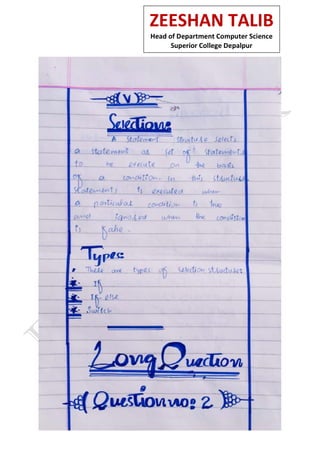 ZEESHAN TALIB
Head of Department Computer Science
Superior College Depalpur
(v)
Selection:
A statement structure selects
a statement or set of statements
to be execute on the basis
of a condition. In this structure
statements is executed when
a particular condition is true
and ignored when the condition
is false.
Types:
There are types of selection structures
If
If else
Switch
Long Question
(Question no: 2)